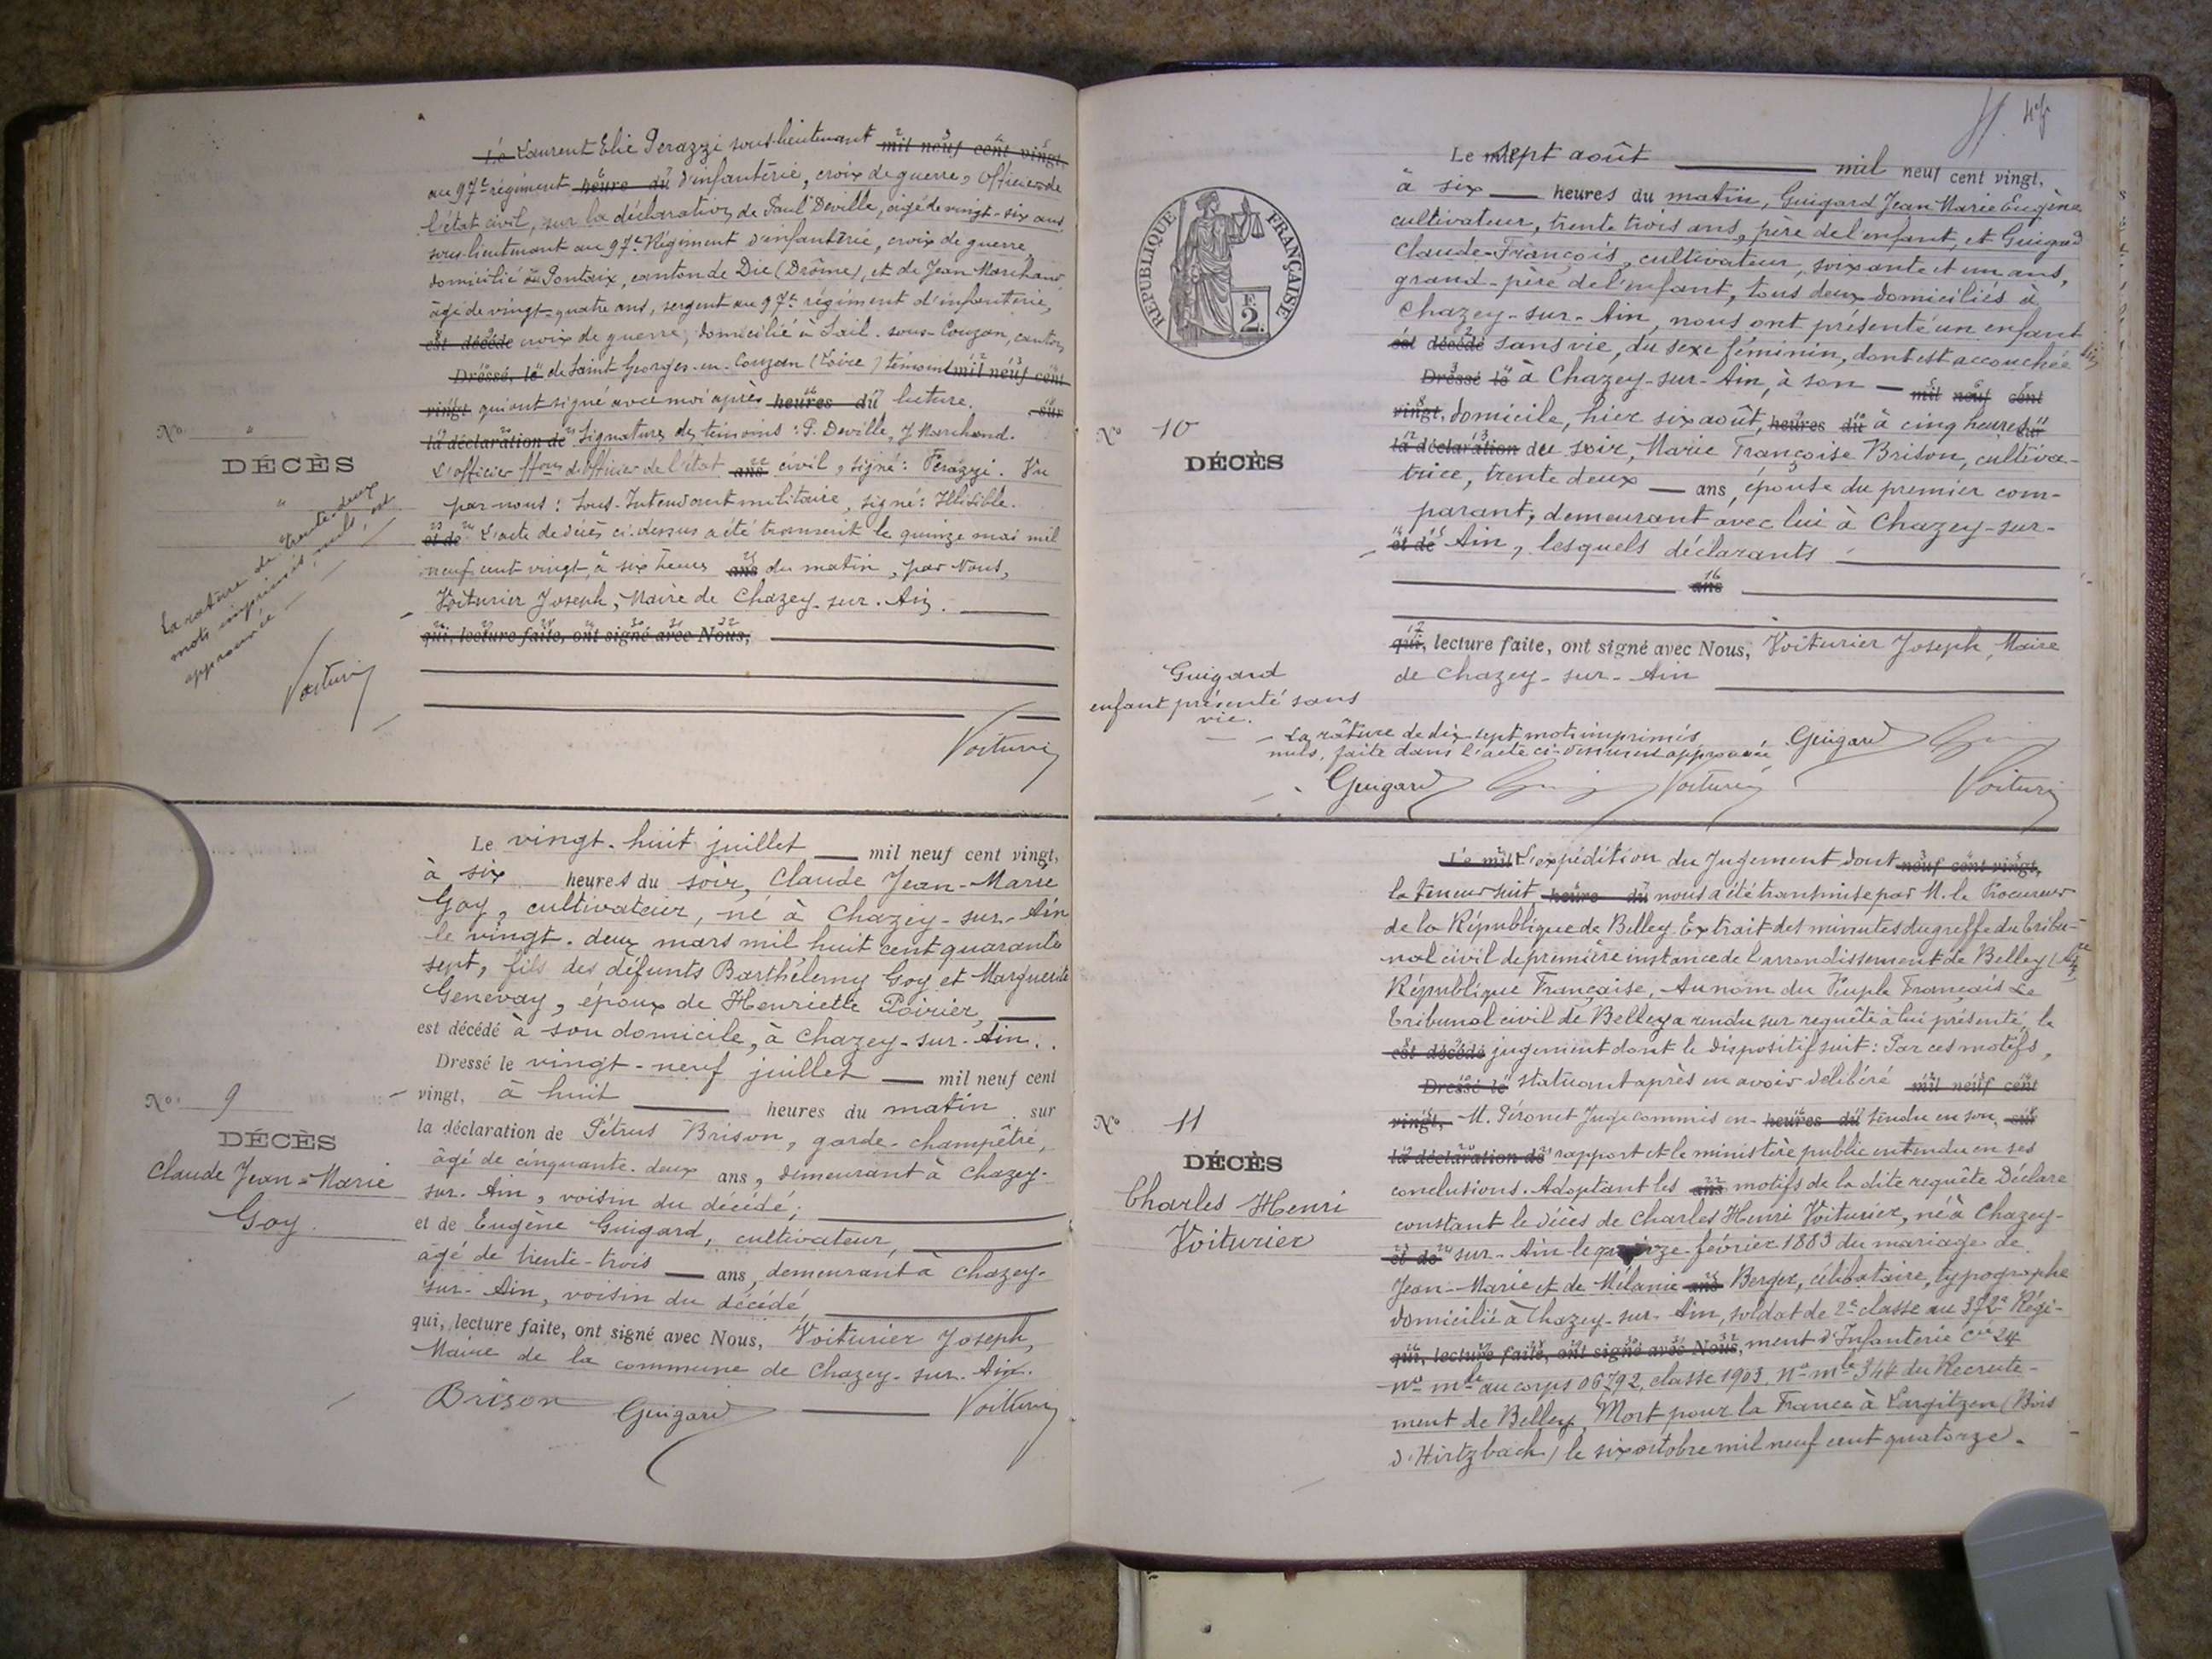 Le Laurent Elie Perazzi sous-lieutenant mil neuf cent vingt,
au 97e régiment heure du d'infanterie, croix de guerre, officier de
l'état civil, sur la déclaration de Paul Deville, âgé de vingt-six ans
sous-lieutenant au 97e Régiment d'infanterie, croix de guerre,
domicilié à Pontaix, canton de Die (Drôme), et de Jean Marchand
âgé de vingt-quatre ans, sergent au 97e régiment d'infanterie,
est décédé croix de guerre, domicilié à Sail-sous-Couzan, canton
Dressé, le de Saint Georges-en-Couzan (Loire) témoins mil neuf cent
vingt qui ont signé avec moi après heures du lecture. sur
la déclaration de Signatures des témoins : P. Deville, J. Marchand.
L'officier ffons d'officier de l'état ans civil, signé : Perazzi. Vu
par nous : Sous-Intendant militaire, signé : Illisible.
et de L'acte de décès ci-dessus a été transcrit le quinze mai mil
neuf cent vingt, à six heures ans du matin, par Nous,
Voiturier Joseph, Maire de Chazey-sur-Ain.
qui, lecture faite, ont signé avec Nous,
Voiturier
No. "
DÉCÈS
"
La rature de trente-deux
mots imprimés, nuls, est
approuvée
Voiturier
Le vingt-huit juillet mil neuf cent vingt,
à six heures du soir, Claude Jean-Marie
Goy, cultivateur, né à Chazey-sur-Ain
le vingt-deux mars mil huit cent quarante
sept, fils des défunts Barthélemy Goy et Marguerite
Genevay, époux de Henriette Poirier,
est décédé à son domicile, à Chazey-sur-Ain.
Dressé le vingt-neuf juillet mil neuf cent
vingt, à huit heures du matin, sur
la déclaration de Pétrus Brison, garde-champêtre,
âgé de cinquante-deux ans, demeurant à Chazey-
sur-Ain, voisin du décédé;
et de Eugène Guigard, cultivateur,
âgé de trente-trois ans, demeurant à Chazey-
sur-Ain, voisin du décédé,
qui, lecture faite, ont signé avec Nous, Voiturier Joseph,
Maire de la commune de Chazey-sur-Ain.
Brison Guigard Voiturier
No. 9
DÉCÈS
Claude Jean-Marie
Goy.
47
RÉPUBLIQUE FRANÇAISE
F.
2.
Le mil sept août mil neuf cent vingt,
à six heures du matin, Guigard Jean Marie Eugène
cultivateur, trente trois ans, père de l'enfant, et Guigard
Claude-François, cultivateur, soixante et un ans,
grand-père de l'enfant, tous deux domiciliés à
Chazey-sur-Ain, nous ont présenté un enfant
est décédé sans vie, du sexe féminin, dont est accouchée
Dressé le à Chazey-sur-Ain, à son mil neuf cent
vingt, domicile, hier six août, heures du à cinq heures sur
la déclaration du soir, Marie Françoise Brison, cultiva-
trice, trente deux ans, épouse du premier com-
parant, demeurant avec lui à Chazey-sur-
et de Ain, lesquels déclarants
ans
qui, lecture faite, ont signé avec Nous, Voiturier Joseph, Maire
de Chazey-sur-Ain
No 10
DÉCÈS
Guigard
enfant présenté sans
vie.
La râture de dix sept mots imprimés
nuls, faite dans l'acte ci-dessus est approuvée
Guigard
Guigard Voiturier Voiturier
Le mil L'expédition du Jugement dont neuf cent vingt,
la teneur suit heure du nous a été transmise par M. le Procureur
de la République de Belley. Extrait des minutes du greffe du Tribu-
nal civil de première instance de l'arrondissement de Belley
République Française, Au nom du Peuple Français Le
Tribunal civil de Belley a rendu sur requête à lui présenté, le
est décédé jugement dont le dispositif suit : Par ces motifs,
Dressé le statuant après en avoir délibéré mil neuf cent
vingt, M. Péronet Juge commis en- heures du tendu en son sur
la déclaration de rapport et le ministère public entendu en ses
conclusions. Adoptant les ans motifs de la dite requête Déclare
constant le décès de Charles Henri Voiturier, né à Chazey-
et de sur-Ain le quinze février 1883 du mariage de
Jean-Marie et de Mélanie ans Berger, célibataire, typographe
domicilié à Chazey-sur-Ain, soldat de 2e classe au 372e Régi-
qui, lecture faite, ont signé avec Nous, ment d'Infanterie Cie 24
No mle au corps 06792, classe 1903, No mle 344 du Recrute-
ment de Belley, Mort pour la France à Largitzen (Bois
d'Hirtzbach) le six octobre mil neuf cent quatorze.
No 11
DÉCÈS
Charles Henri
Voiturier